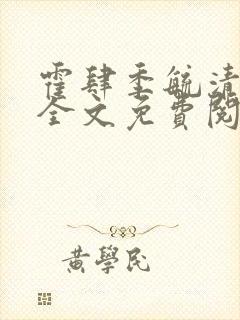 霍肆季毓清
全文免費閱
黃學民